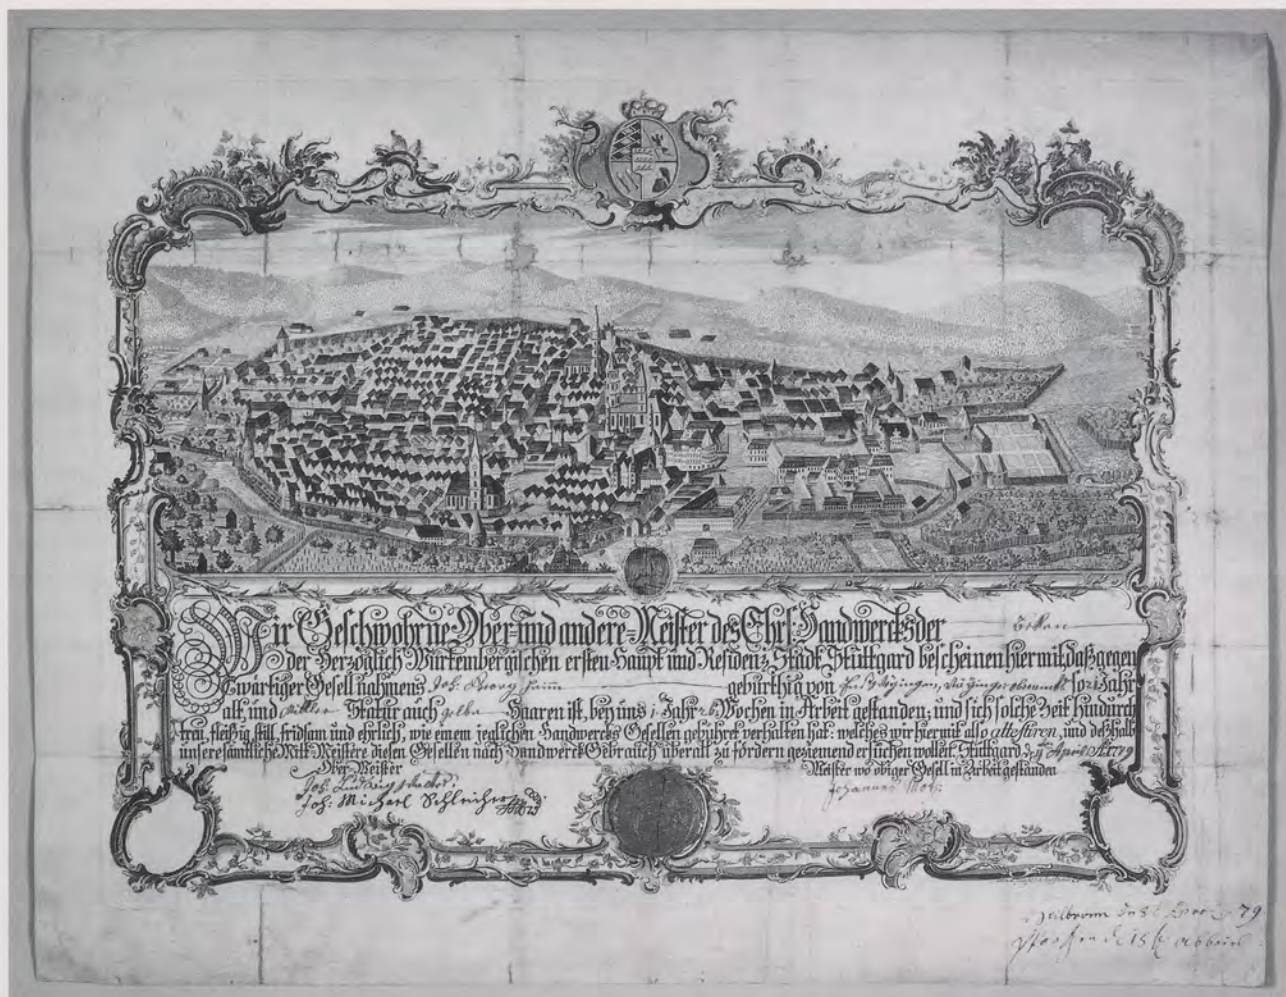 Wir Geschwohrne Ober- und andere-Meister des Ehrs: Handwercks der
der Herzoglich Würtembergischen ersten Haupt und Residenz-Stadt Stuttgard bescheinen hiermit, daß gegen
wärtiger Gesell nahmens Joh: Georg gebürthig von so 21 Jahr
alt, und Statur auch gelben Haaren ist, bey uns 1 Jahr 26 Wochen in Arbeit gestanden, und sich solche Zeit hindurch
treu, fleißig, still, fridsam und ehrlich, wie einem jeglichen Handwercks Gesellen gebühret verhalten hat: welches wir hiermit also attestiren, und deßhalb
unsere sämtliche Mitt-Meistere diesen Gesellen nach Handwercks Gebrauch überall zu fördern geziemend ersuchen wollen, Stuttgard April A: 1779
Ober-Meister
Meister wo obiger Gesell in Arbeit gestanden
Joh. Ludwig
Johannes
Joh: Michael Schleicher
Heilbronn 79